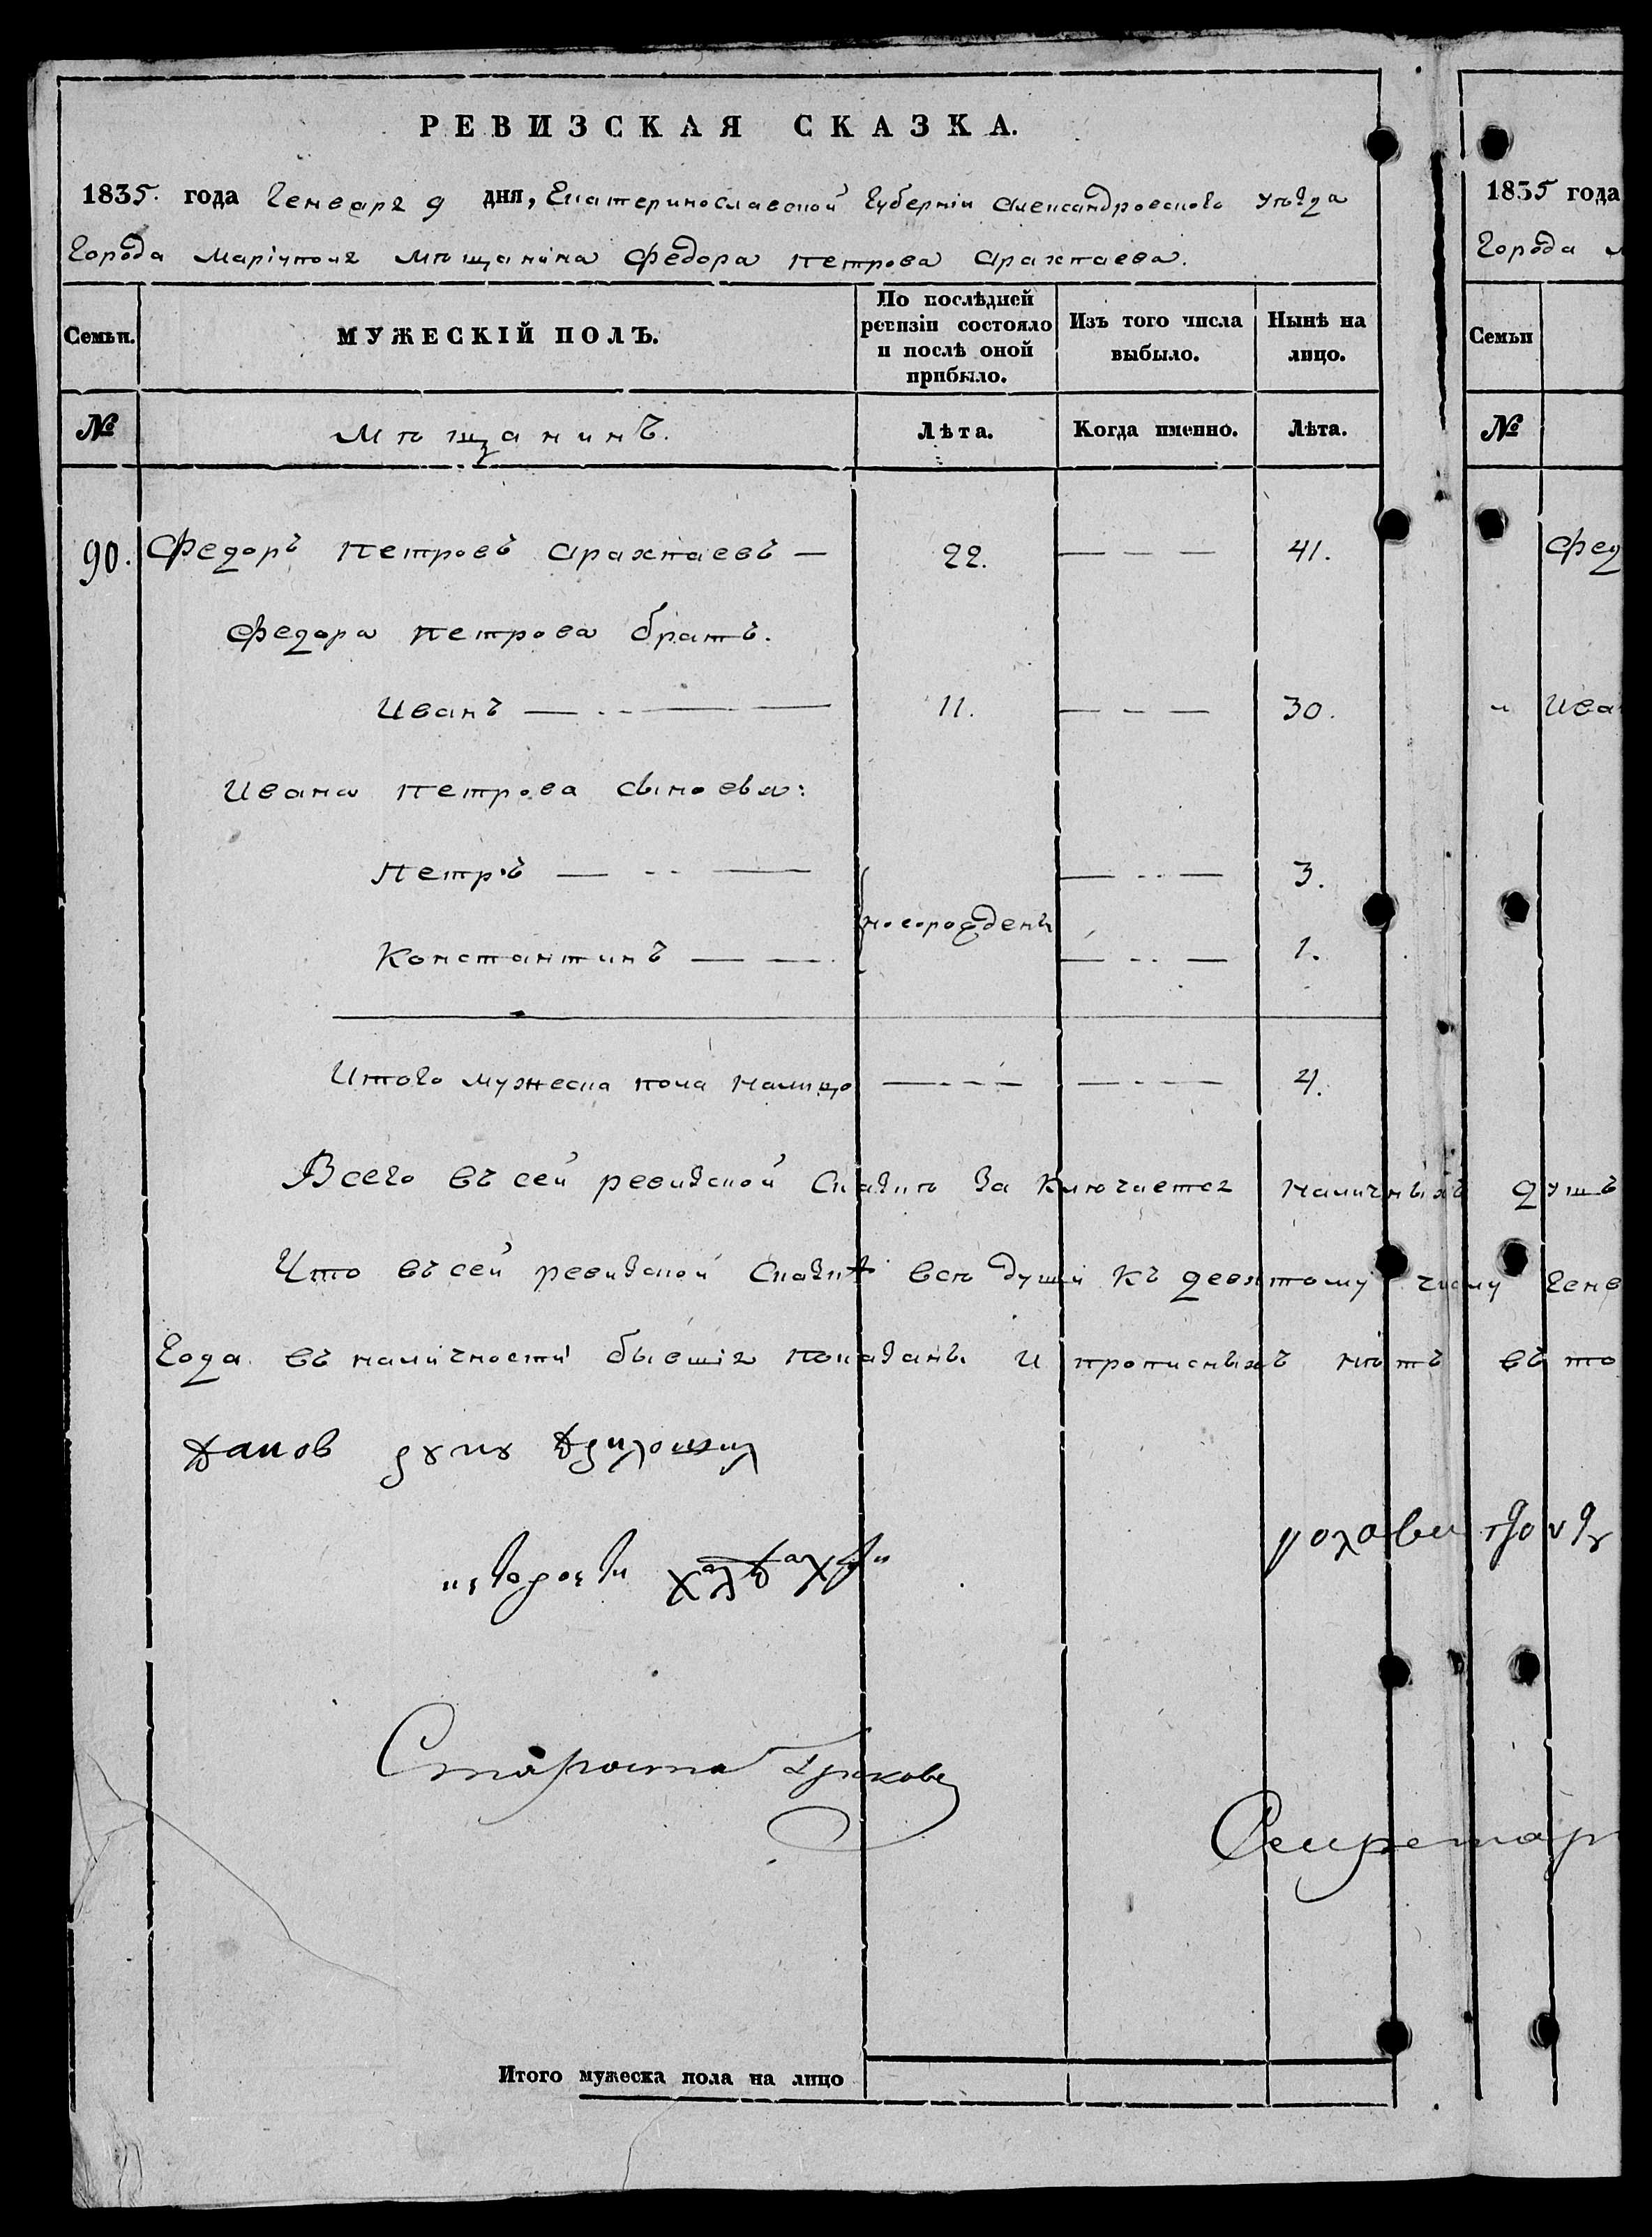 РЕВИЗСКАЯ СКАЗКА.
1835. года Генваря 9 дня, Екатеринославской Губерніи Александровскаго уѣзда
Города Маріуполя мѣщанина Федора Петрова Арахтаева.
Семьи. МУЖЕСКІЙ ПОЛЪ. По послѣдней ревизіи состояло и послѣ оной прибыло. Изъ того числа выбыло. Нынѣ на лицо.
№ Мѣщанинъ. Лѣта. Когда именно. Лѣта.
90. Федоръ Петровъ Арахтаевъ — 22. — — — 41.
Федора Петрова братъ.
Иванъ — 11. — — — 30.
Ивана Петрова сыновья:
Петръ — — 3.
новорождены
Константинъ — — 1.
Итого мужеска пола налицо — — 4.
Всего въ сей ревизской сказкѣ заключается наличныхъ душъ
Что въ сей ревизской сказкѣ всѣ души къ девятому числу Генв
Года въ наличности бывшія показаны и прописныхъ нѣтъ въ то
Староста
Секретар
Итого мужеска пола на лицо
1835 года
Города м
Семьи
№
Фед
" Ива